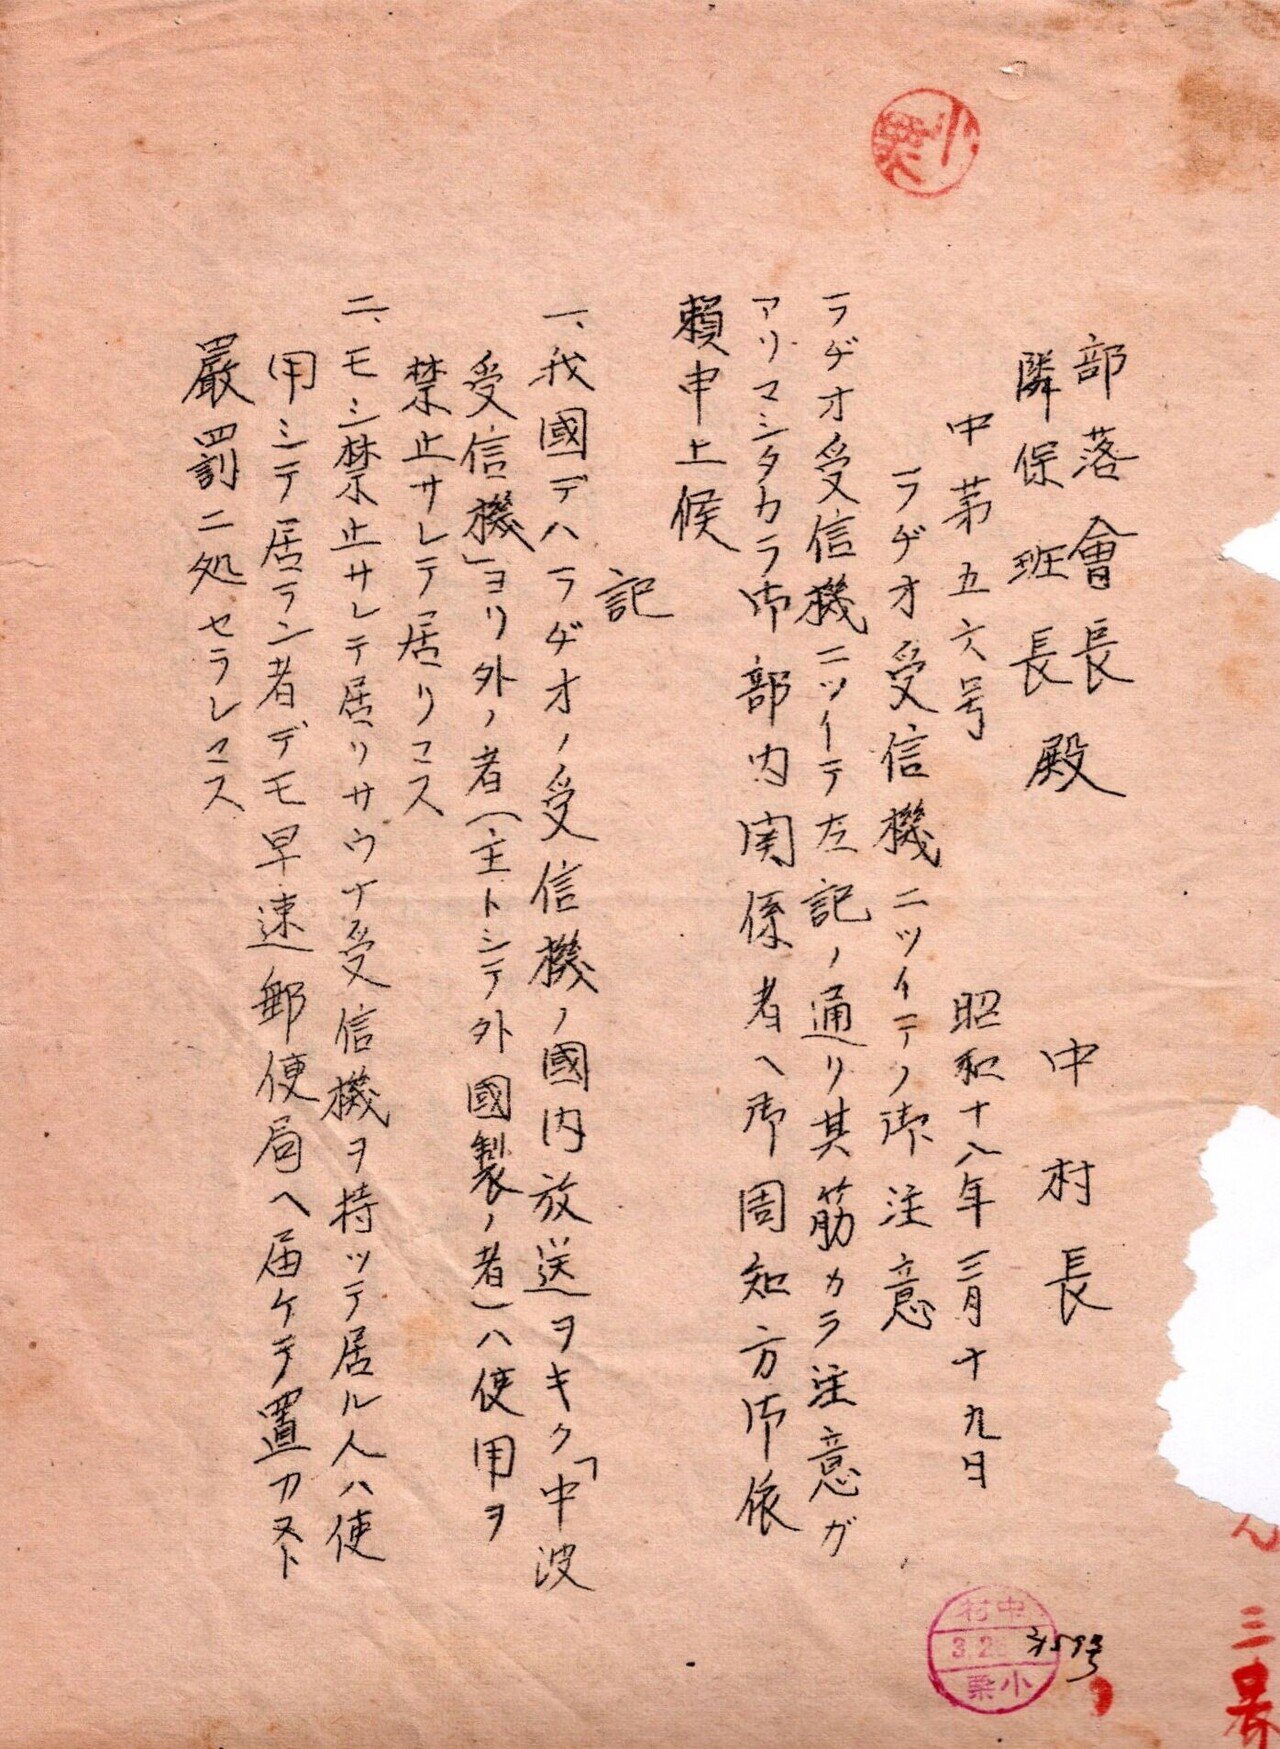 部落會長
隣保班長 殿
中村長
中第五六号
昭和十八年三月十九日
ラヂオ受信機ニツイテノ御注意
ラヂオ受信機ニツイテ左記ノ通リ其筋カラ注意ガ
アリマシタカラ御部内関係者ヘ御周知方御依
賴申上候
記
一、我國デハラヂオノ受信機ノ國内放送ヲキク「中波
受信機」ヨリ外ノ者(主トシテ外國製ノ者)ハ使用ヲ
禁止サレテ居リマス
二、モシ禁止サレテ居リサウナ受信機ヲ持ツテ居ル人ハ使
用シテ居ラン者デモ早速郵便局ヘ届ケテ置カヌト
嚴罰ニ処セラレマス
小栗
中村
3.2
小栗
三